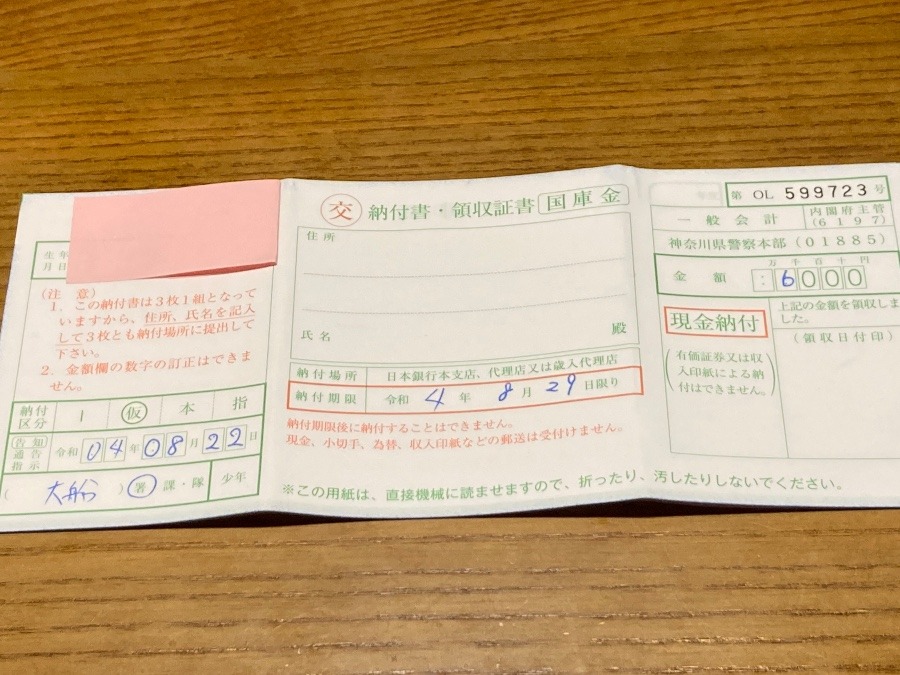 生年
月日
(注 意)
1. この納付書は3枚1組となって
いますから、住所、氏名を記入
して3枚とも納付場所に提出して
下さい。
2. 金額欄の数字の訂正はできま
せん。
納付
区分
1
仮
本
指
告知
通告
指示
令和04年08月22日
(大船)署 課・隊 少年
交 納付書・領収証書 国庫金
住所
氏名
殿
納付場所 日本銀行本支店、代理店又は歳入代理店
納付期限 令和 4 年 8 月 29 日限り
納付期限後に納付することはできません。
現金、小切手、為替、収入印紙などの郵送は受付けません。
※この用紙は、直接機械に読ませますので、折ったり、汚したりしないでください。
第 OL 599723 号
一般会計
内閣府主管
(6197)
神奈川県警察本部(01885)
金額
万 千 百 十 円
6000
現金納付
(有価証券又は収
入印紙による納
付はできません。)
上記の金額を領収しま
した。
(領収日付印)